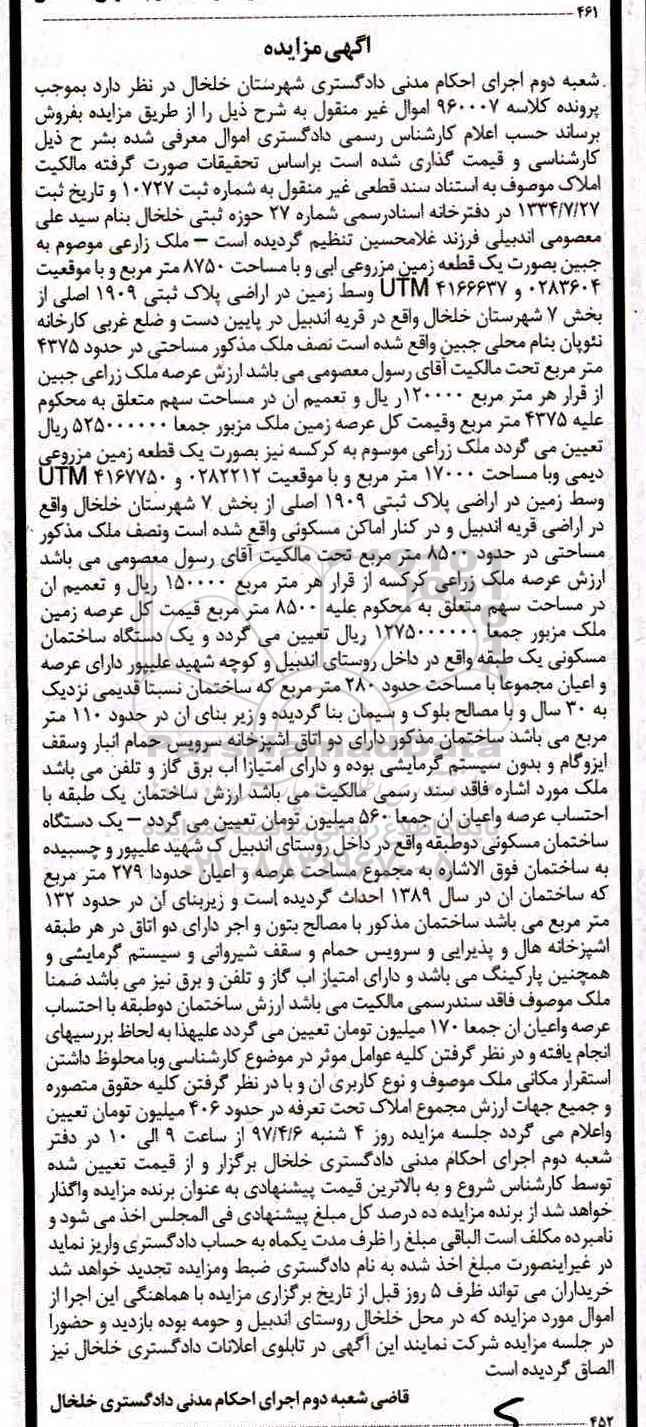 ۴۶۱
آگهی مزایده
شعبه دوم اجرای احکام مدنی دادگستری شهرستان خلخال در نظر دارد بموجب
پرونده کلاسه ۹۶۰۰۰۷ اموال غیر منقول به شرح ذیل را از طریق مزایده بفروش
برساند حسب اعلام کارشناس رسمی دادگستری اموال معرفی شده بشر ح ذیل
کارشناسی و قیمت گذاری شده است براساس تحقیقات صورت گرفته مالکیت
املاک موصوف به استناد سند قطعی غیر منقول به شماره ثبت ۱۰۷۲۷ و تاریخ ثبت
۱۳۳۴/۷/۲۷ در دفترخانه اسنادرسمی شماره ۲۷ حوزه ثبتی خلخال بنام سید علی
معصومی اندبیلی فرزند غلامحسین تنظیم گردیده است – ملک زارعی موصوم به
جبین بصورت یک قطعه زمین مزروعی ابی و با مساحت ۸۷۵۰ متر مربع و با موقعیت
۰۲۸۳۶۰۴ و UTM ۴۱۶۶۶۳۷ وسط زمین در اراضی پلاک ثبتی ۱۹۰۹ اصلی از
بخش ۷ شهرستان خلخال واقع در قریه اندبیل در پایین دست و ضلع غربی کارخانه
نئوپان بنام محلی جبین واقع شده است نصف ملک مذکور مساحتی در حدود ۴۳۷۵
متر مربع تحت مالکیت آقای رسول معصومی می باشد ارزش عرصه ملک زراعی جبین
از قرار هر متر مربع ۱۲۰۰۰۰ر یال و تعمیم ان در مساحت سهم متعلق به محکوم
علیه ۴۳۷۵ متر مربع وقیمت کل عرصه زمین ملک مزبور جمعا ۵۲۵۰۰۰۰۰۰ ریال
تعیین می گردد ملک زراعی موسوم به کرکسه نیز بصورت یک قطعه زمین مزروعی
دیمی وبا مساحت ۱۷۰۰۰ متر مربع و با موقعیت ۰۲۸۲۲۱۲ و UTM ۴۱۶۷۷۵۰
وسط زمین در اراضی پلاک ثبتی ۱۹۰۹ اصلی از بخش ۷ شهرستان خلخال واقع
در اراضی قریه اندبیل و در کنار اماکن مسکونی واقع شده است ونصف ملک مذکور
مساحتی در حدود ۸۵۰۰ متر مربع تحت مالکیت آقای رسول معصومی می باشد
ارزش عرصه ملک زراعی کرکسه از قرار هر متر مربع ۱۵۰۰۰۰ ریال و تعمیم ان
در مساحت سهم متعلق به محکوم علیه ۸۵۰۰ متر مربع قیمت کل عرصه زمین
ملک مزبور جمعا ۱۲۷۵۰۰۰۰۰۰ ریال تعیین می گردد و یک دستگاه ساختمان
مسکونی یک طبقه واقع در داخل روستای اندبیل و کوچه شهید علیپور دارای عرصه
و اعیان مجموعا با مساحت حدود ۲۸۰ متر مربع که ساختمان نسبتا قدیمی نزدیک
به ۳۰ سال و با مصالح بلوک و سیمان بنا گردیده و زیر بنای ان در حدود ۱۱۰ متر
مربع می باشد ساختمان مذکور دارای دو اتاق اشپزخانه سرویس حمام انبار وسقف
ایزوگام و بدون سیستم گرمایشی بوده و دارای امتیازا اب برق گاز و تلفن می باشد
ملک مورد اشاره فاقد سند رسمی مالکیت می باشد ارزش ساختمان یک طبقه با
احتساب عرصه واعیان ان جمعا ۵۶۰ میلیون تومان تعیین می گردد – یک دستگاه
ساختمان مسکونی دوطبقه واقع در داخل روستای اندبیل ک شهید علیپور و چسبیده
به ساختمان فوق الاشاره به مجموع مساحت عرصه و اعیان حدودا ۲۷۹ متر مربع
که ساختمان ان در سال ۱۳۸۹ احداث گردیده است و زیربنای آن در حدود ۱۳۲
متر مربع می باشد ساختمان مذکور با مصالح بتون و اجر دارای دو اتاق در هر طبقه
اشپزخانه هال و پذیرایی و سرویس حمام و سقف شیروانی و سیستم گرمایشی و
همچنین پارکینگ می باشد و دارای امتیاز اب گاز و تلفن و برق نیز می باشد ضمنا
ملک موصوف فاقد سندرسمی مالکیت می باشد ارزش ساختمان دوطبقه با احتساب
عرصه واعیان ان جمعا ۱۷۰ میلیون تومان تعیین می گردد علیهذا به لحاظ بررسیهای
انجام یافته و در نظر گرفتن کلیه عوامل موثر در موضوع کارشناسی وبا محلوظ داشتن
استقرار مکانی ملک موصوف و نوع کاربری ان و با در نظر گرفتن کلیه حقوق متصوره
و جمیع جهات ارزش مجموع املاک تحت تعرفه در حدود ۴۰۶ میلیون تومان تعیین
واعلام می گردد جلسه مزایده روز ۴ شنبه ۹۷/۴/۶ از ساعت ۹ الی ۱۰ در دفتر
شعبه دوم اجرای احکام مدنی دادگستری خلخال برگزار و از قیمت تعیین شده
توسط کارشناس شروع و به بالاترین قیمت پیشنهادی به عنوان برنده مزایده واگذار
خواهد شد از برنده مزایده ده درصد کل مبلغ پیشنهادی فی المجلس اخذ می شود و
نامبرده مکلف است الباقی مبلغ را ظرف مدت یکماه به حساب دادگستری واریز نماید
در غیراینصورت مبلغ اخذ شده به نام دادگستری ضبط ومزایده تجدید خواهد شد
خریداران می تواند ظرف ۵ روز قبل از تاریخ برگزاری مزایده با هماهنگی این اجرا از
اموال مورد مزایده که در محل خلخال روستای اندبیل و حومه بوده بازدید و حضورا
در جلسه مزایده شرکت نمایند این آگهی در تابلوی اعلانات دادگستری خلخال نیز
الصاق گردیده است
قاضی شعبه دوم اجرای احکام مدنی دادگستری خلخال
۴۵۲